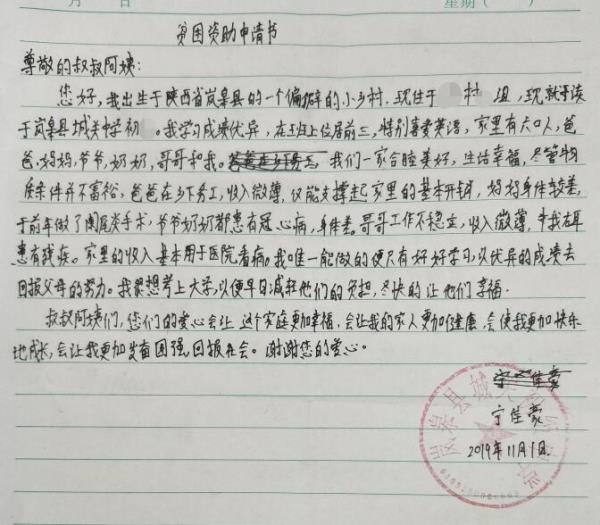 月 日 星期（ ）
贫困资助申请书
尊敬的叔叔阿姨:
您好,我出生于陕西省岚皋县的一个偏僻的小乡村.现住于 村 组,现就读
于岚皋县城关中学初 。我学习成绩优异,在班上位居前三,特别喜爱英语,家里有六口人,爸
爸,妈妈,爷爷,奶奶,哥哥和我。我们一家合睦美好,生活幸福,尽管物
质条件并不富裕,爸爸在乡下务工,收入微薄,仅能支撑起家里的基本开销,妈妈身体较差,
于前年做了阑尾炎手术,爷爷奶奶都患有冠心病,身体差。哥哥工作不稳定,收入微薄,我左耳
患有残疾。家里的收入基本用于医院看病。我唯一能做的便只有好好学习,以优异的成绩去
回报父母的努力。我很想考上大学,以便早日减轻他们的负担,尽快的让他们幸福.
叔叔阿姨们,您们的爱心会让这个家庭更加幸福,会让我的家人更加健康,会使我更加快乐
地成长,会让我更加发奋图强,回报社会。谢谢您的爱心。
宁佳蒙
2019年11月1日.
岚皋县城关